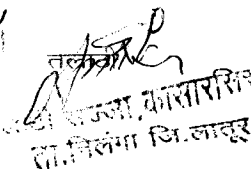 तलाठी
सज्जा, कासारसिर
ता.निलंगा जि.लातूर